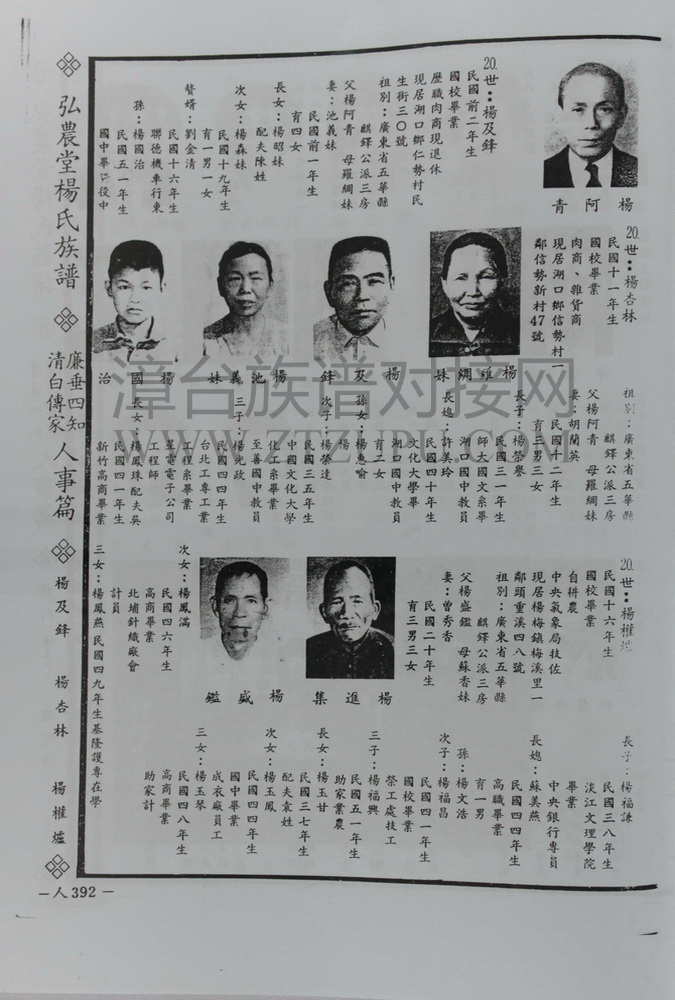 20.世：楊及鋒
民國前二年生
國校畢業
歷職肉商現退休
現居湖口鄉仁勢村民
生街三〇號
祖別：廣東省五華縣
麒鐸公派三房
父楊阿青　母羅綢妹
妻：池義妹
民國前一年生
育四女
長女：楊昭妹
配夫陳姓
次女：楊森妹
民國十九年生
育一男一女
贅婿：劉金清
民國十六年生
聯德機車行東
孫：楊國治
民國五一年生
國中畢　役中
楊阿青
20.世：楊杏林
民國十一年生
國校畢業
肉商、雜貨商
現居湖口鄉信勢村一
鄰信勢新村47號
楊羅綢妹
楊及鋒
楊池義妹
楊國治
祖別：廣東省五華縣
麒鐸公派三房
父楊阿青　母羅綢妹
妻：胡蘭英
民國十二年生
育三男三女
長子：楊榮譽
民國三一年生
師大國文系畢
湖口國中教員
長媳：許美玲
民國四十年生
文化大學畢
湖口國中教員
育二女
孫女：楊惠喻
楊
次子：楊榮達
民國三五年生
中國文化大學
化工系畢業
至善國中教員
三子：楊光政
民國四四年生
台北工專工業
工程系畢業
星電電子公司
工程師
長女：楊鳳珠配夫吳
民國四一年生
新竹高商畢業
次女：楊鳳滿
民國四六年生
高商畢業
北埔針織廠會
計員
三女：楊鳳燕民國四九年生基隆護專在學
20.世：楊權
民國十六年生
國校畢業
自耕農
中央氣象局技佐
現居楊梅鎮梅溪里一
鄰頭重溪四八號
祖別：廣東省五華縣
麒鐸公派三房
父楊盛鑑　母蘇香妹
妻：曾秀香
民國二十年生
育三男三女
楊進集
楊盛鑑
長子：楊福謙
民國三八年生
淡江文理學院
畢業
中央銀行專員
長媳：蘇美燕
民國四四年生
高職畢業
育一男
孫：楊文浩
次子：楊福昌
民國四一年生
國校畢業
榮工處技工
三子：楊福興
民國五一年生
助家業農
長女：楊玉甘
民國三七年生
配夫袁姓
次女：楊玉鳳
民國四四年生
國中畢業
成衣廠員工
三女：楊玉琴
民國四八年生
高商畢業
助家計
弘農堂楊氏族譜
廉垂四知
清白傳家
人事篇
楊及鋒
楊杏林
楊權
－人392－
漳台族谱对接网
WWW.ZTZUPU.COM